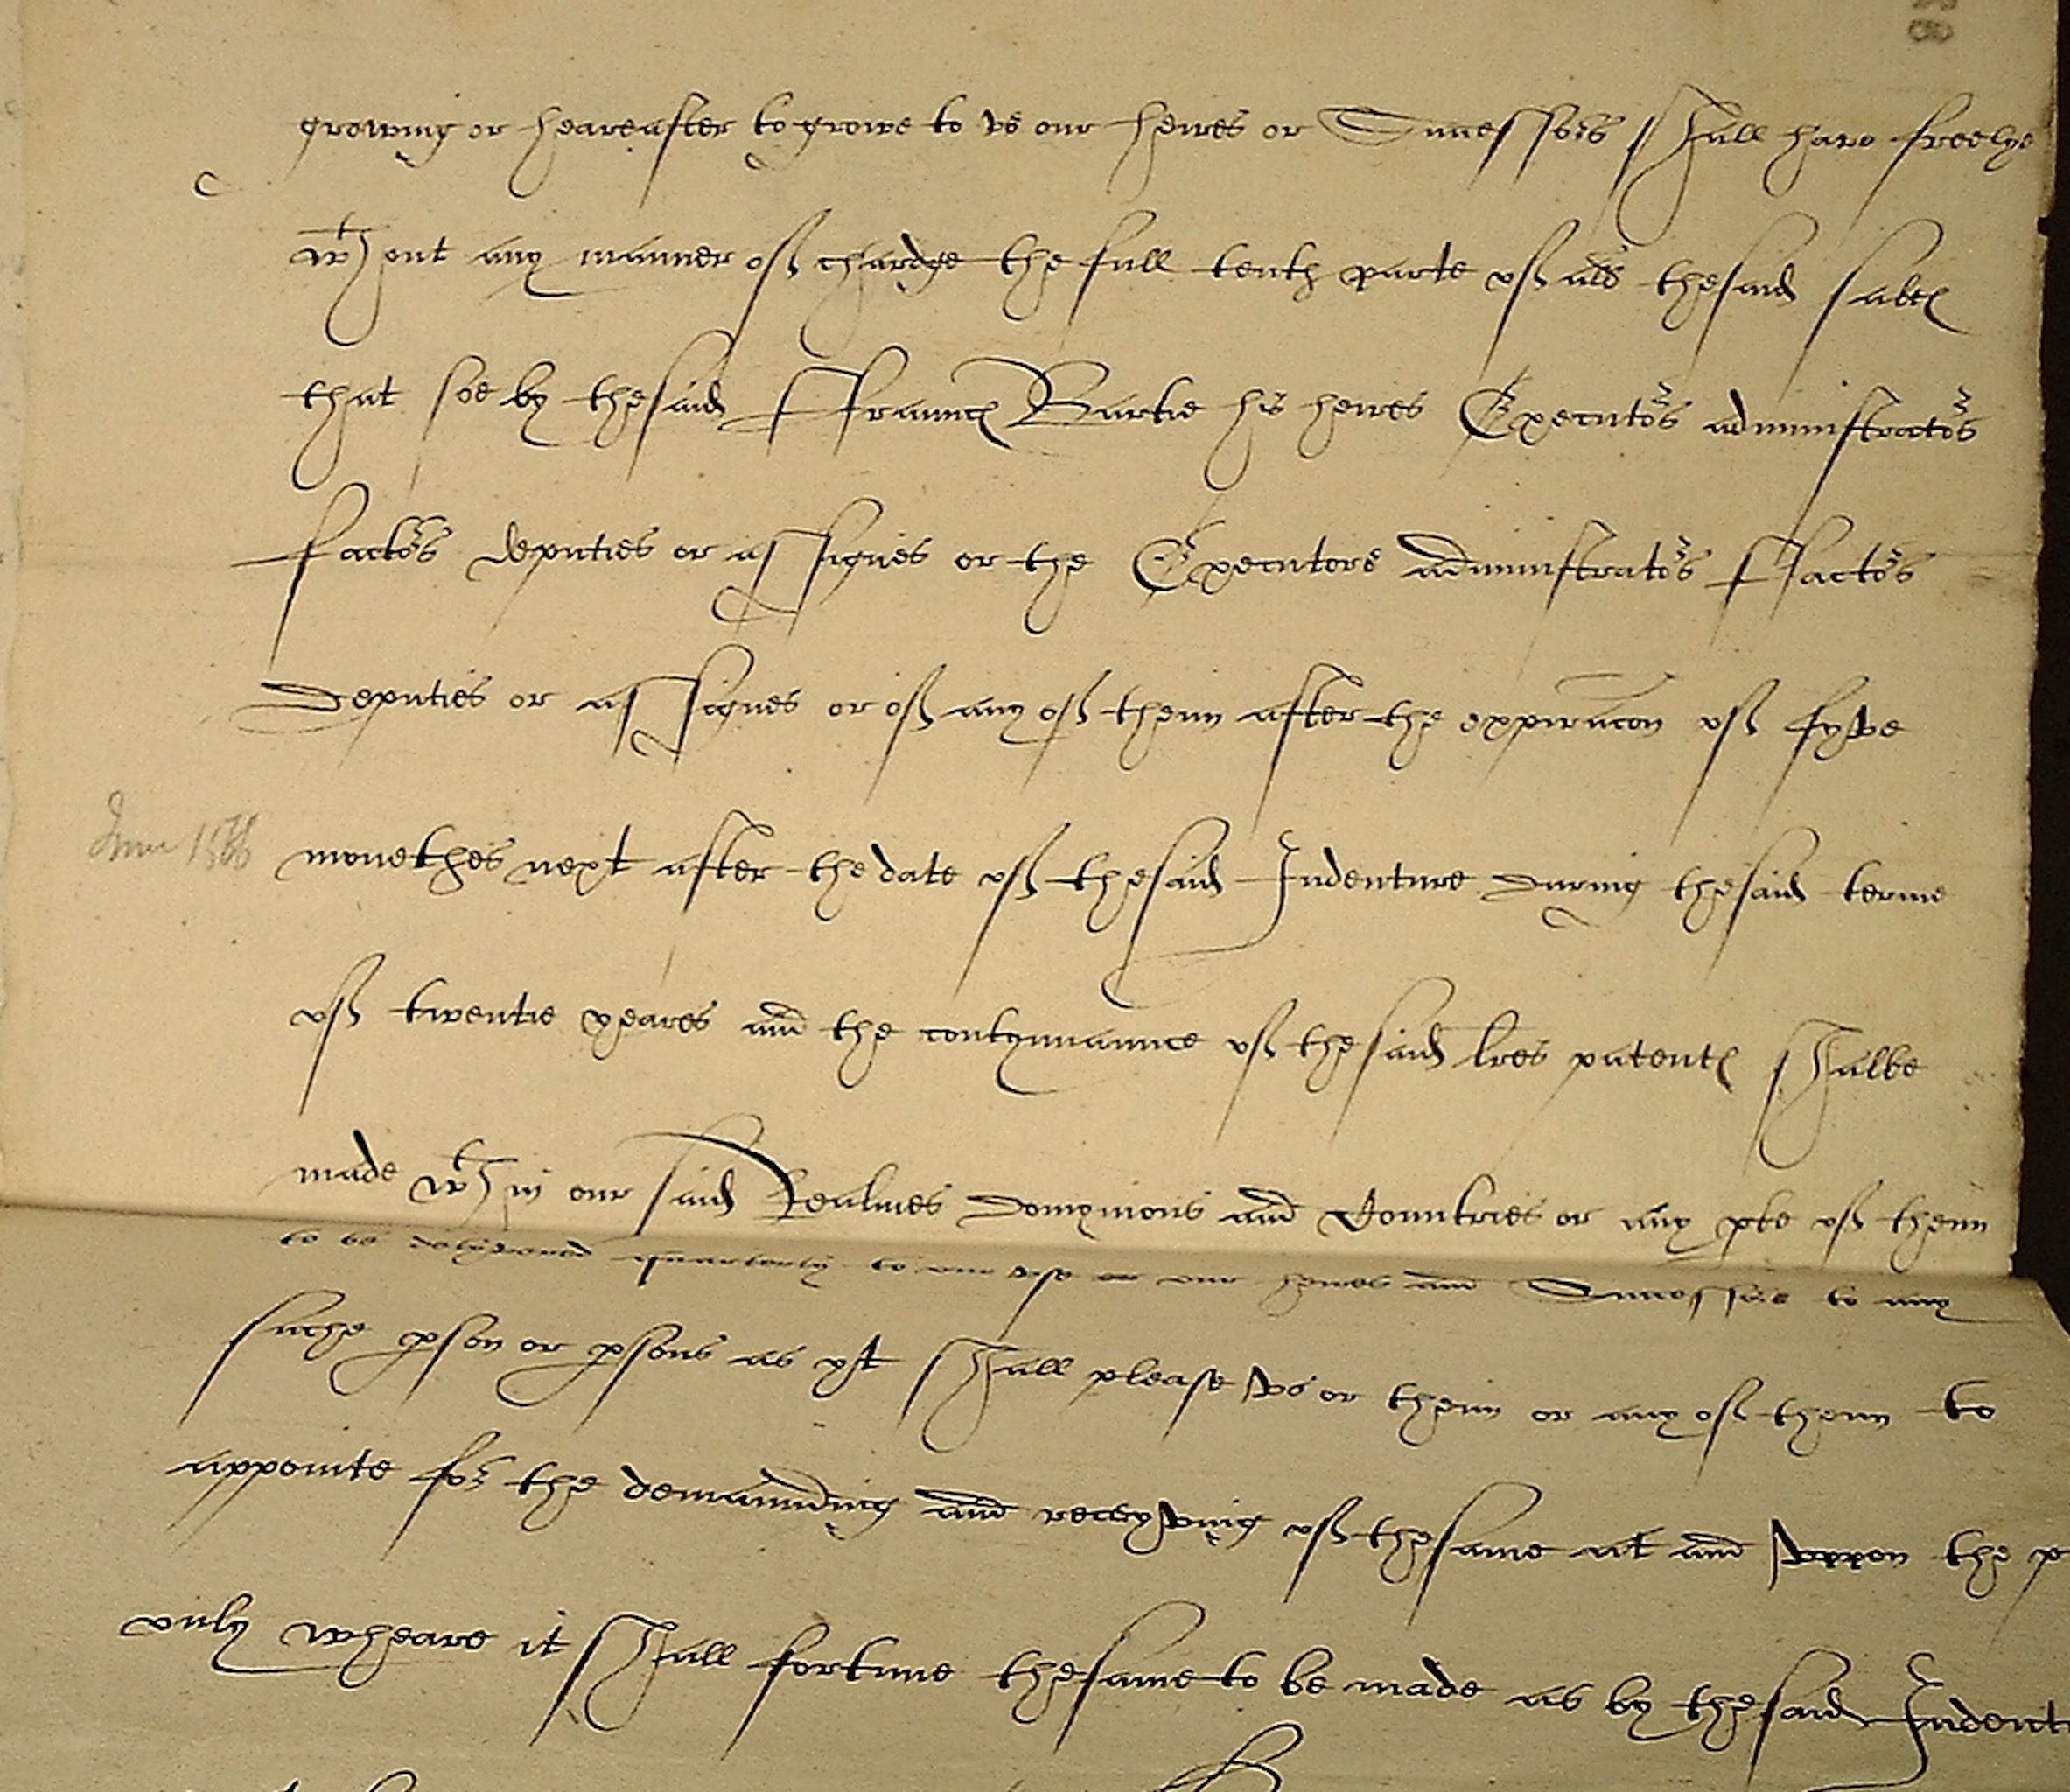 growing or heareafter to growe to vs our heires or Successors shall have freelye
wthout any manner off chardge the full tenth parte off all thesaid saltes
that soe by thesaid Frauncs Bartie his heires Executors administrators
factors deputies or assignes or the Executors administrators Factors
Deputies or assignes or off any off them after the expiracon off fyve
monethes next after the date off thesaid Indenture During thesaid terme
June 1566
off twentie yeares and the contynuaunce off thesaid lres patents shalbe
made wthin our said Realmes Domynions and Countries or any pte off them
to be delyvered quarterly to our use or our heires and Successors to any
suche pson or psons as yt shall please vs or them or any off them to
appointe for the demaunding and receyving off thesame at and vppon the p
only wheare it shall fortune thesame to be made as by thesaid Indent